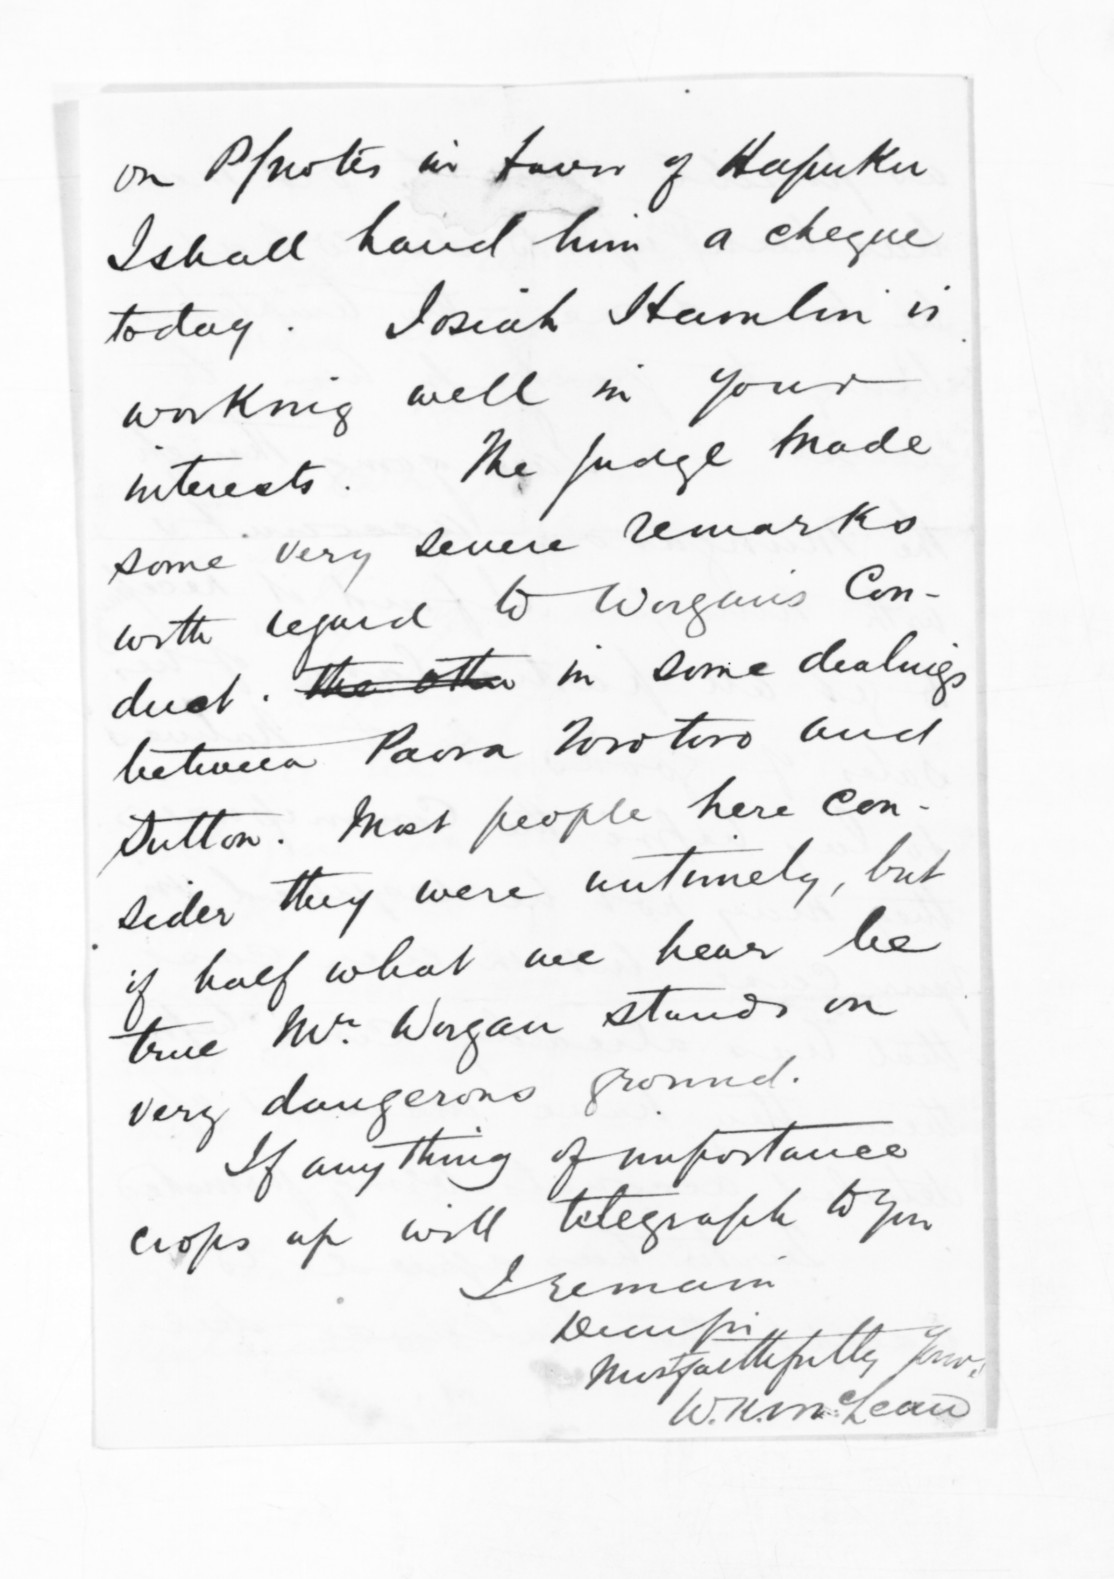 on P/notes in favor of Hapuku
I shall hand him a cheque
today. Josiah Hamlin is
working well in your
interests. The Judge made
some very severe remarks
with regard to Worgan's Con-
duct. the other in some dealings
between Paora Torotoro and
Sutton. Most people here con-
sider they were untimely, but
if half what we hear be
true Mr. Worgan stands on
very dangerous ground.
If anything of importance
crops up will telegraph to you
I remain
Dear Sir
Most faithfully Yours
W.K. McLean